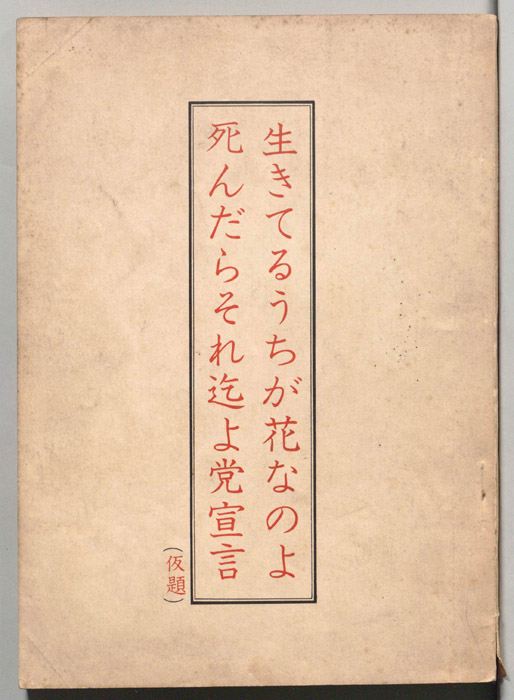 生きてるうちが花なのよ
死んだらそれ迄よ党宣言
(仮題)